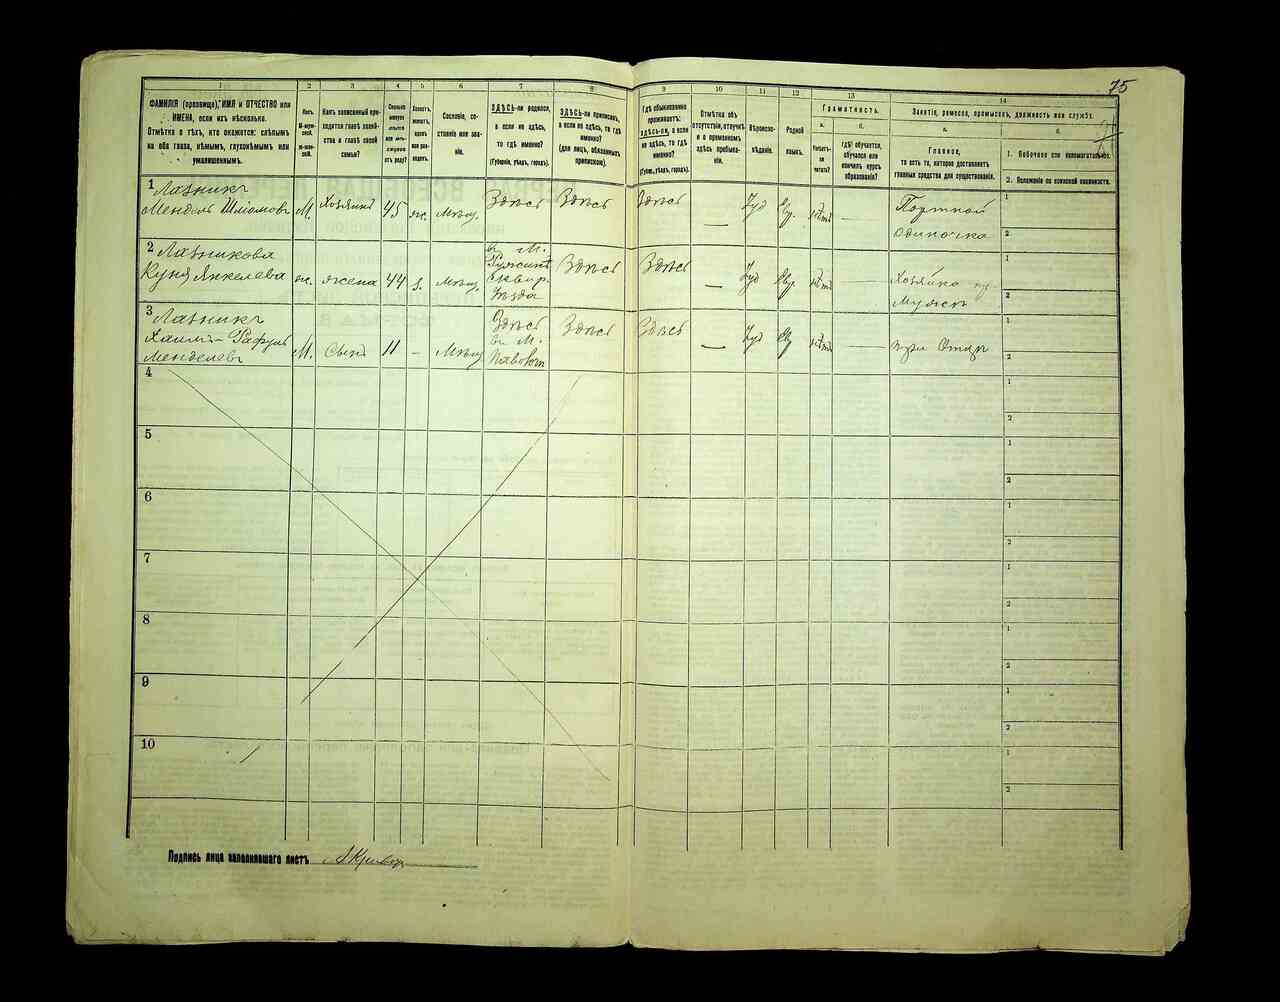 75
1 2 3 4 5 6 7 8 9 10 11 12 13 14
ФАМИЛІЯ (прозвище), ИМЯ и ОТЧЕСТВО или
ИМЕНА, если ихъ нѣсколько.
Отмѣтка о тѣхъ, кто окажется: слѣпымъ
на оба глаза, нѣмымъ, глухонѣмымъ или
умалишеннымъ.
Полъ.
М-муж-
ской.
ж-жен-
скій.
Какъ записанный при-
ходится главѣ хозяй-
ства и главѣ своей
семьи?
Сословіе, со-
стояніе или зва-
ніе.
ЗДѢСЬ-ли родился,
а если не здѣсь,
то гдѣ именно?
(Губернія, уѣздъ, городъ).
ЗДѢСЬ-ли приписанъ,
а если не здѣсь, то гдѣ
именно?
(для лицъ, обязанныхъ
припискою).
Гдѣ обыкновенно
проживаетъ:
ЗДѢСЬ-ли, а если
не здѣсь, то гдѣ
именно?
(Губерн., уѣздъ, городъ).
Отмѣтка объ
отсутствіи, отлучкѣ
и о временномъ
здѣсь пребыва-
ніи.
Вѣроиспо-
вѣданіе.
Родной
языкъ.
Грамотность.
а. б.
Умѣетъ-
ли
читать?
Гдѣ обучается,
обучался или
кончилъ курсъ
образованія?
Занятіе, ремесло, промыселъ, должность или служба.
а. б.
Главное,
то есть то, которое доставляетъ
главныя средства для существованія.
1. Побочное или вспомогательное.
2. Положеніе по воинской повинности.
1 Лазникъ
Мендель Шліомовъ М. Хозяинъ 45 ж. Мѣщ. Здѣсь Здѣсь Здѣсь — Іуд Евр. нѣтъ — Портной
одиночка
2 Лазникова
Куня Янкелева ж. жена 44 з. Мѣщ. в М.
Ружинѣ
Сквир.
уѣзда Здѣсь Здѣсь — Іуд Евр. нѣтъ — Хозяйка
3 Лазникъ
Хаимъ-Рафуль
Менделевъ М. Сынъ 11 - Мѣщ Здѣсь
въ М. Здѣсь Здѣсь — Іуд Евр нѣтъ — при Отцѣ
4
5
6
7
8
9
10
1
2
1
2
1
2
1
2
1
2
1
2
1
2
1
2
1
2
1
2
Подпись лица заполнявшаго листъ